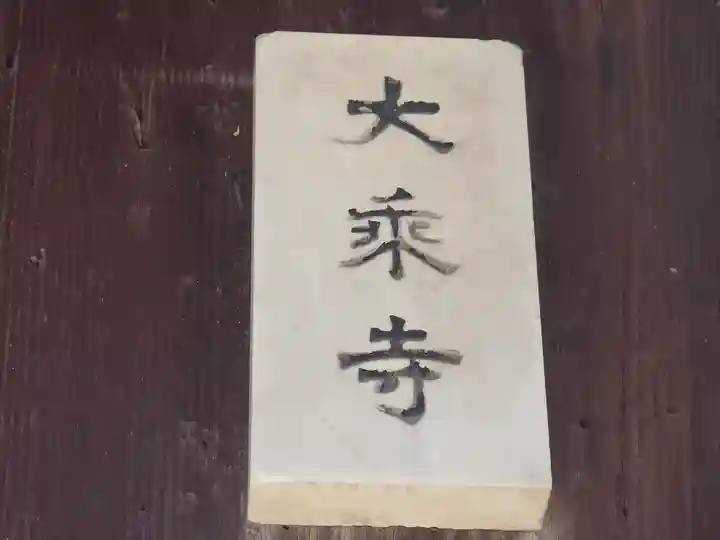 大乘寺